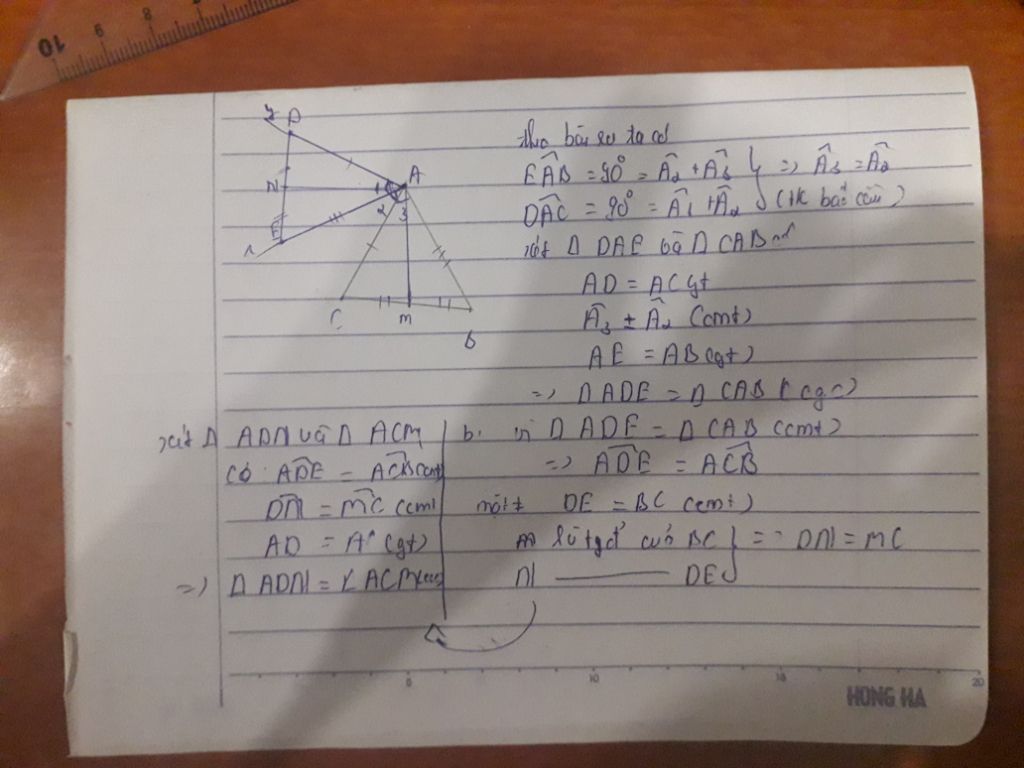 10 9 8 7
y D
N 1 A
2 3
E
x
C M B
theo bài ra ta có
EÂB = 90° = Â2 + Â3 } => Â3 = Â2
DÂC = 90° = Â1 + Â2 (tk bắc cầu)
xét Δ DAE và Δ CAB có
AD = AC gt
Â3 = Â2 (cmt)
AE = AB (gt)
=> Δ ADE = Δ CAB (cgc)
b. vì Δ ADE = Δ CAB (cmt)
=> ADE = ACB
mặt ≠ DE = BC (cmt)
M là tđ của BC } => DN = MC
N ——— DE
xét Δ ADN và Δ ACM
có ADE = ACB (cmt)
DN = MC (cmt
AD = AC (gt)
=> Δ ADN = Δ ACM (cgc)
5 10 15 20
HONG HA